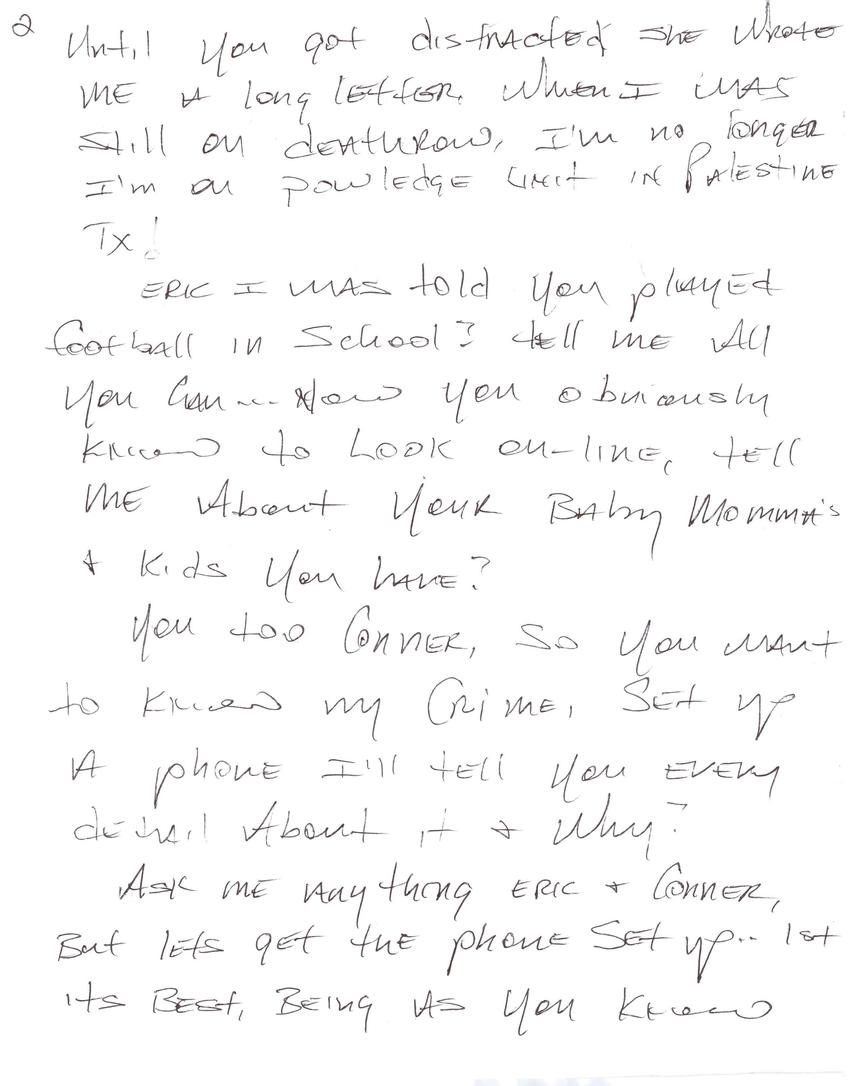 2
Until you got distracted she wrote
me a long letter. When I was
still on deathrow, I'm no longer
I'm on Powledge Unit in Palestine
Tx!
Eric I was told you played
football in School? tell me All
you Can... Now you obviously
Know to Look on-line, tell
me About your Baby Momma's
+ Kids you have?
You too Conner, So you want
to Know my Crime, Set up
A phone I'll tell you every
detail About it + Why?
Ask me Anything Eric + Conner,
But lets get the phone Set up.. 1st
its Best, Being As you Know